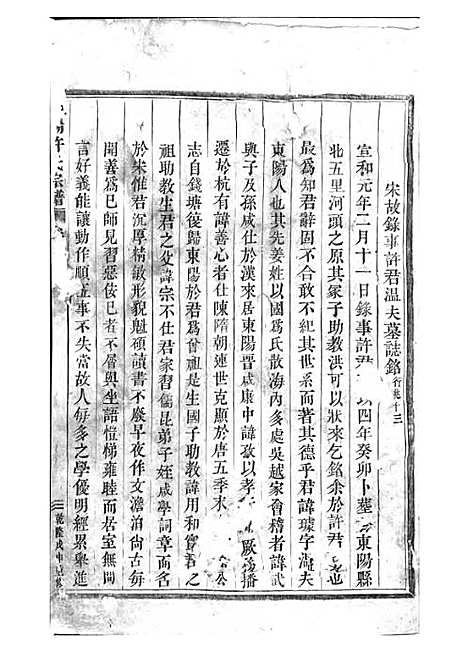 宋故錄事許君溫夫墓誌銘
宣和元年二月十一日錄事許君 四年癸卯卜墓 東陽縣
北五里河頭之原其冢子助教洪可以狀來乞銘余於許君 也
最為知君辭固不合敢不紀其世系而著其德乎君諱璩字溫夫
東陽人也其先姜姓以國為氏散海內多處吳越家會稽者諱武
興子及孫咸仕於漢來居東陽晉咸康中諱孜以孝 厥後播
遷於杭有諱善心者仕陳隋朝連世克顯於唐五季末
志自錢塘復歸東陽於君為曾祖是生國子助教諱用和 君之
祖助教生君之父諱宗不仕君家習儒昆弟子姪咸學詞章而君
於朱惟君沉厚精敏形貌魁碩讀書不廢早夜作文澹泊尚古每
聞善為己師見習惡俠己者不屑與坐語愷梯雍睦而居室無間
言好義能讓動作順 事不失當故人每多之學優明經累舉進
許氏宗譜
乾隆戊申